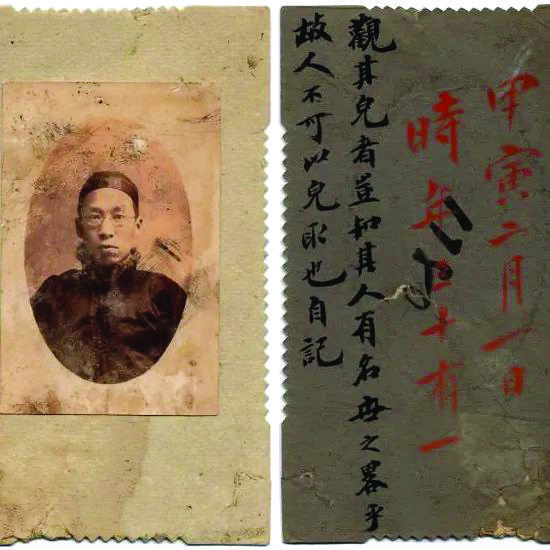 甲寅二月一日
時年二十有一
觀其皃者豈知其人有名世之畧乎
故人不可以皃取也自記